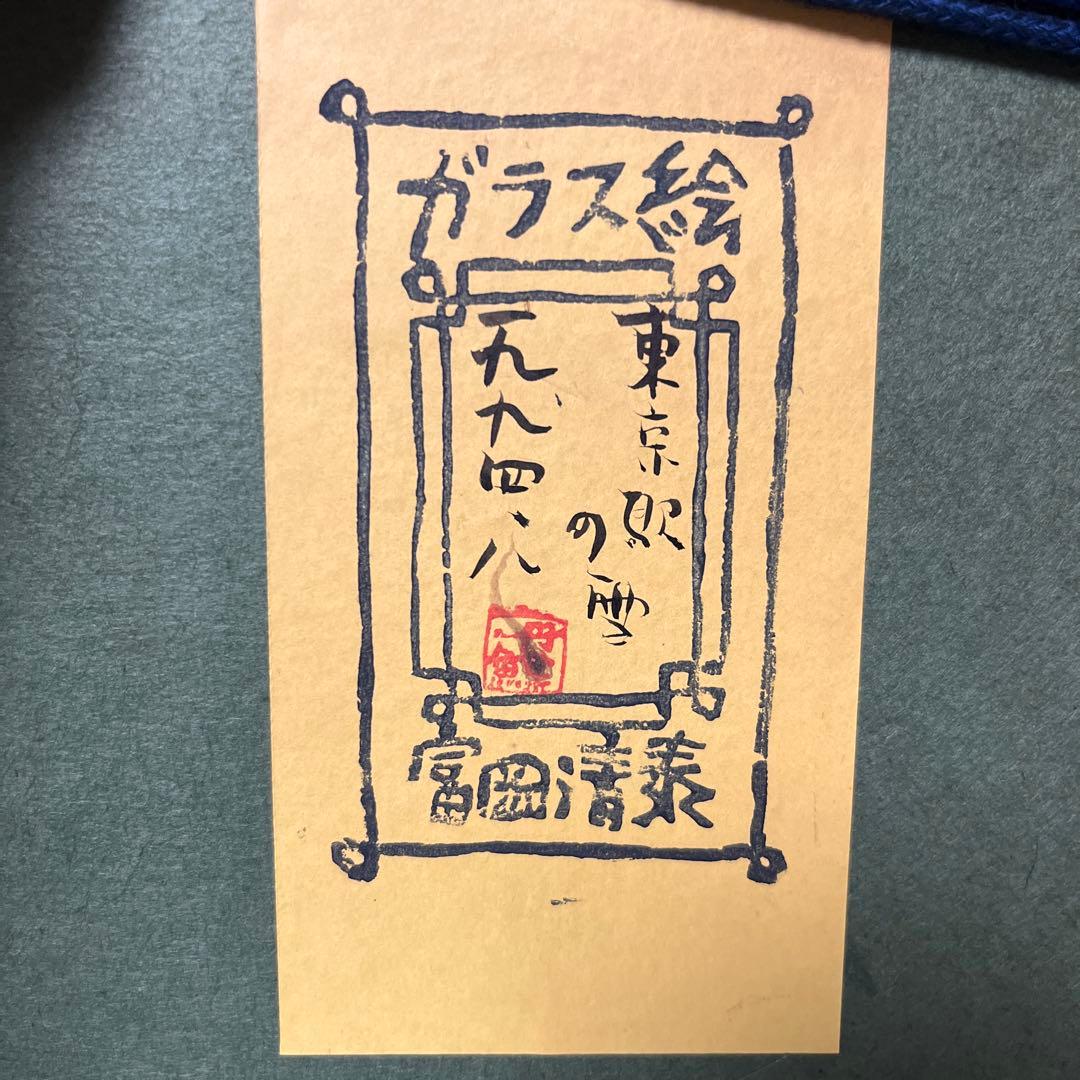 ガラス絵
東京駅
の雪
一九九四、八
富岡清泰